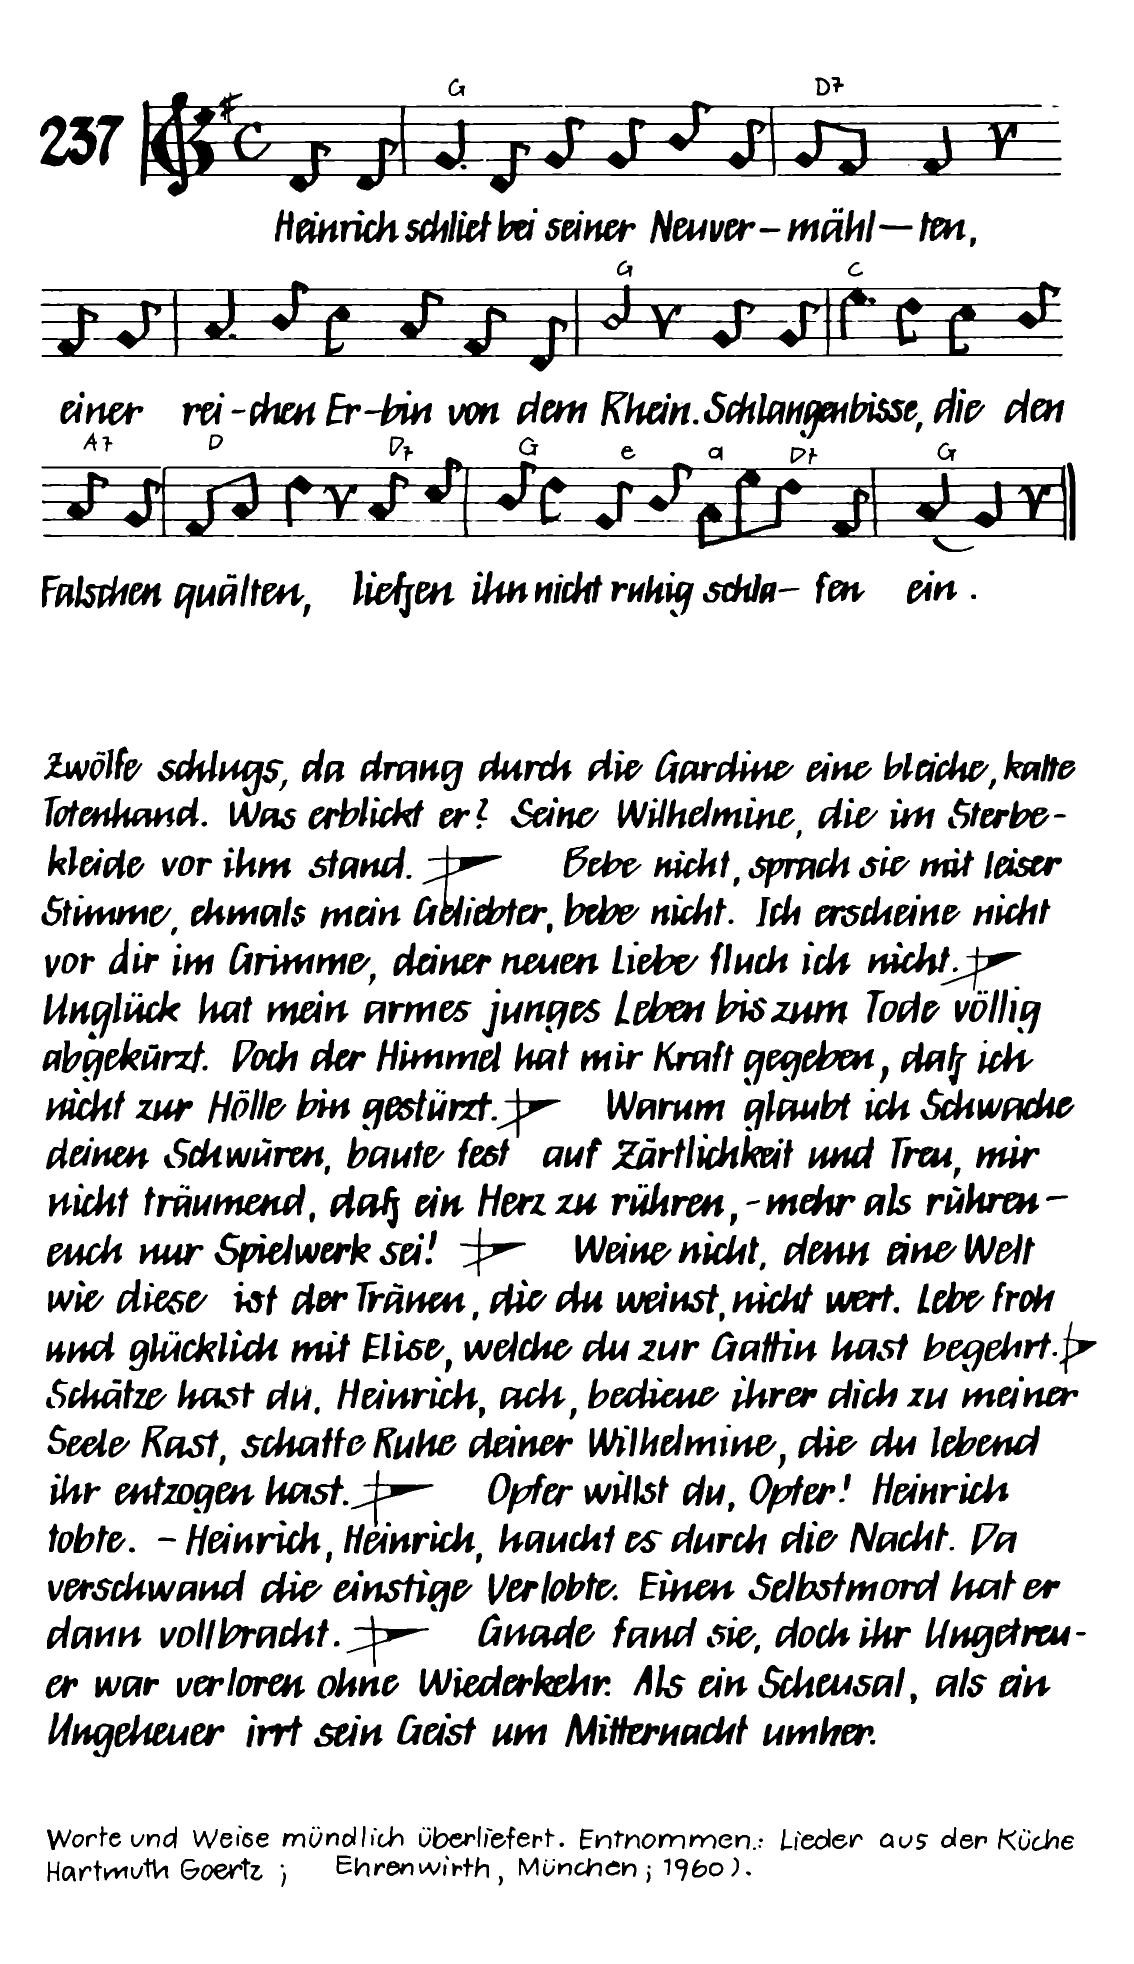 G D7
237
Heinrich schlief bei seiner Neuver–mähl–ten,
G C
einer rei-chen Er-bin von dem Rhein. Schlangenbisse, die den
A7 D D7 G e a D7 G
Falschen quälten, ließen ihn nicht ruhig schla– fen ein.
Zwölfe schlugs, da drang durch die Gardine eine bleiche, kalte
Totenhand. Was erblickt er? Seine Wilhelmine, die im Sterbe-
kleide vor ihm stand. Bebe nicht, sprach sie mit leiser
Stimme, ehmals mein Geliebter, bebe nicht. Ich erscheine nicht
vor dir im Grimme, deiner neuen Liebe fluch ich nicht.
Unglück hat mein armes junges Leben bis zum Tode völlig
abgekürzt. Doch der Himmel hat mir Kraft gegeben, daß ich
nicht zur Hölle bin gestürzt. Warum glaubt ich Schwache
deinen Schwüren, baute fest auf Zärtlichkeit und Treu, mir
nicht träumend, daß ein Herz zu rühren, - mehr als rühren –
euch nur Spielwerk sei! Weine nicht, denn eine Welt
wie diese ist der Tränen, die du weinst, nicht wert. Lebe froh
und glücklich mit Elise, welche du zur Gattin hast begehrt.
Schätze hast du, Heinrich, ach, bediene ihrer dich zu meiner
Seele Rast, schaffe Ruhe deiner Wilhelmine, die du lebend
ihr entzogen hast. Opfer willst du, Opfer! Heinrich
tobte. – Heinrich, Heinrich, haucht es durch die Nacht. Da
verschwand die einstige Verlobte. Einen Selbstmord hat er
dann vollbracht. Gnade fand sie, doch ihr Ungetreu-
er war verloren ohne Wiederkehr. Als ein Scheusal, als ein
Ungeheuer irrt sein Geist um Mitternacht umher.
Worte und Weise mündlich überliefert. Entnommen.: Lieder aus der Küche
Hartmuth Goertz ; Ehrenwirth, München; 1960).